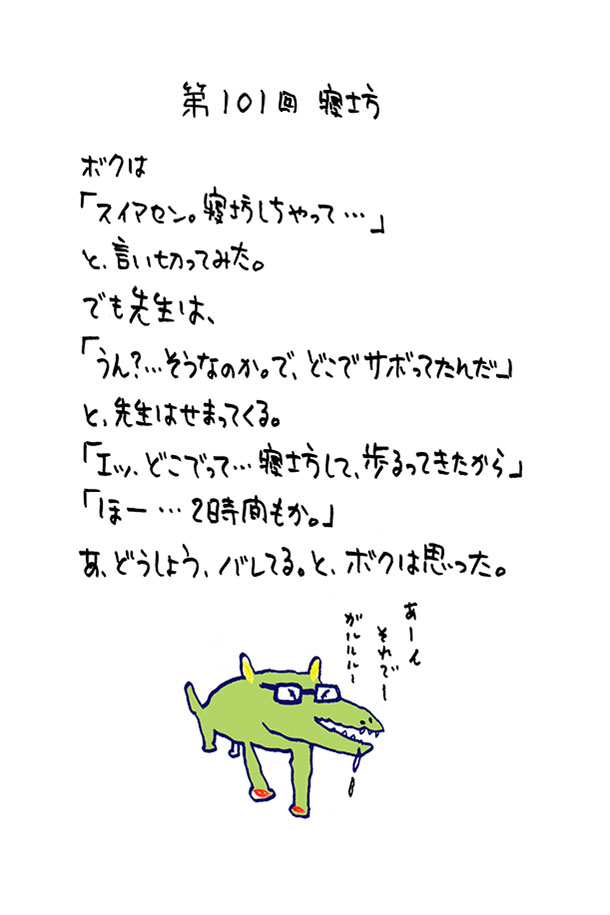 第101回 寝坊
ボクは
「スイアセン。寝坊しちやって…」
と、言い切ってみた。
でも先生は、
「うん?…そうなのか。で、どこでサボってたんだ」
と、先生はせまってくる。
「エッ、どこでって…寝坊して、歩るってきたから」
「ほー…2時間もか。」
あ、どうしよう、バレてる。と、ボクは思った。
あーん
それでー
ガルルルー